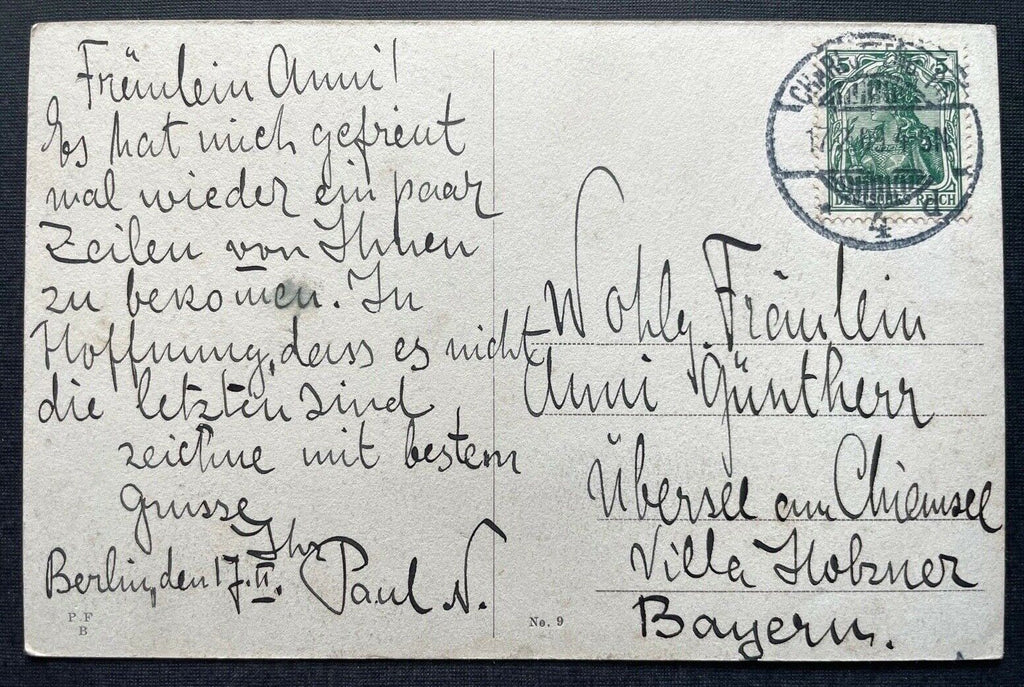 Fräulein Anni!
Es hat mich gefreut
mal wieder ein paar
Zeilen von Ihnen
zu bekomen. In
Hoffnung, dass es nicht
die letzten sind,
zeichne mit bestem
Grusse
Ihr
Berlin, den 17.II. Paul N.
P.F
B
No. 9
5
DEUTSCHES REICH
4-5N
4 d
Wohlg. Fräulein
Anni Güntherr
Übersee am Chiemsee
Villa
Bayern.